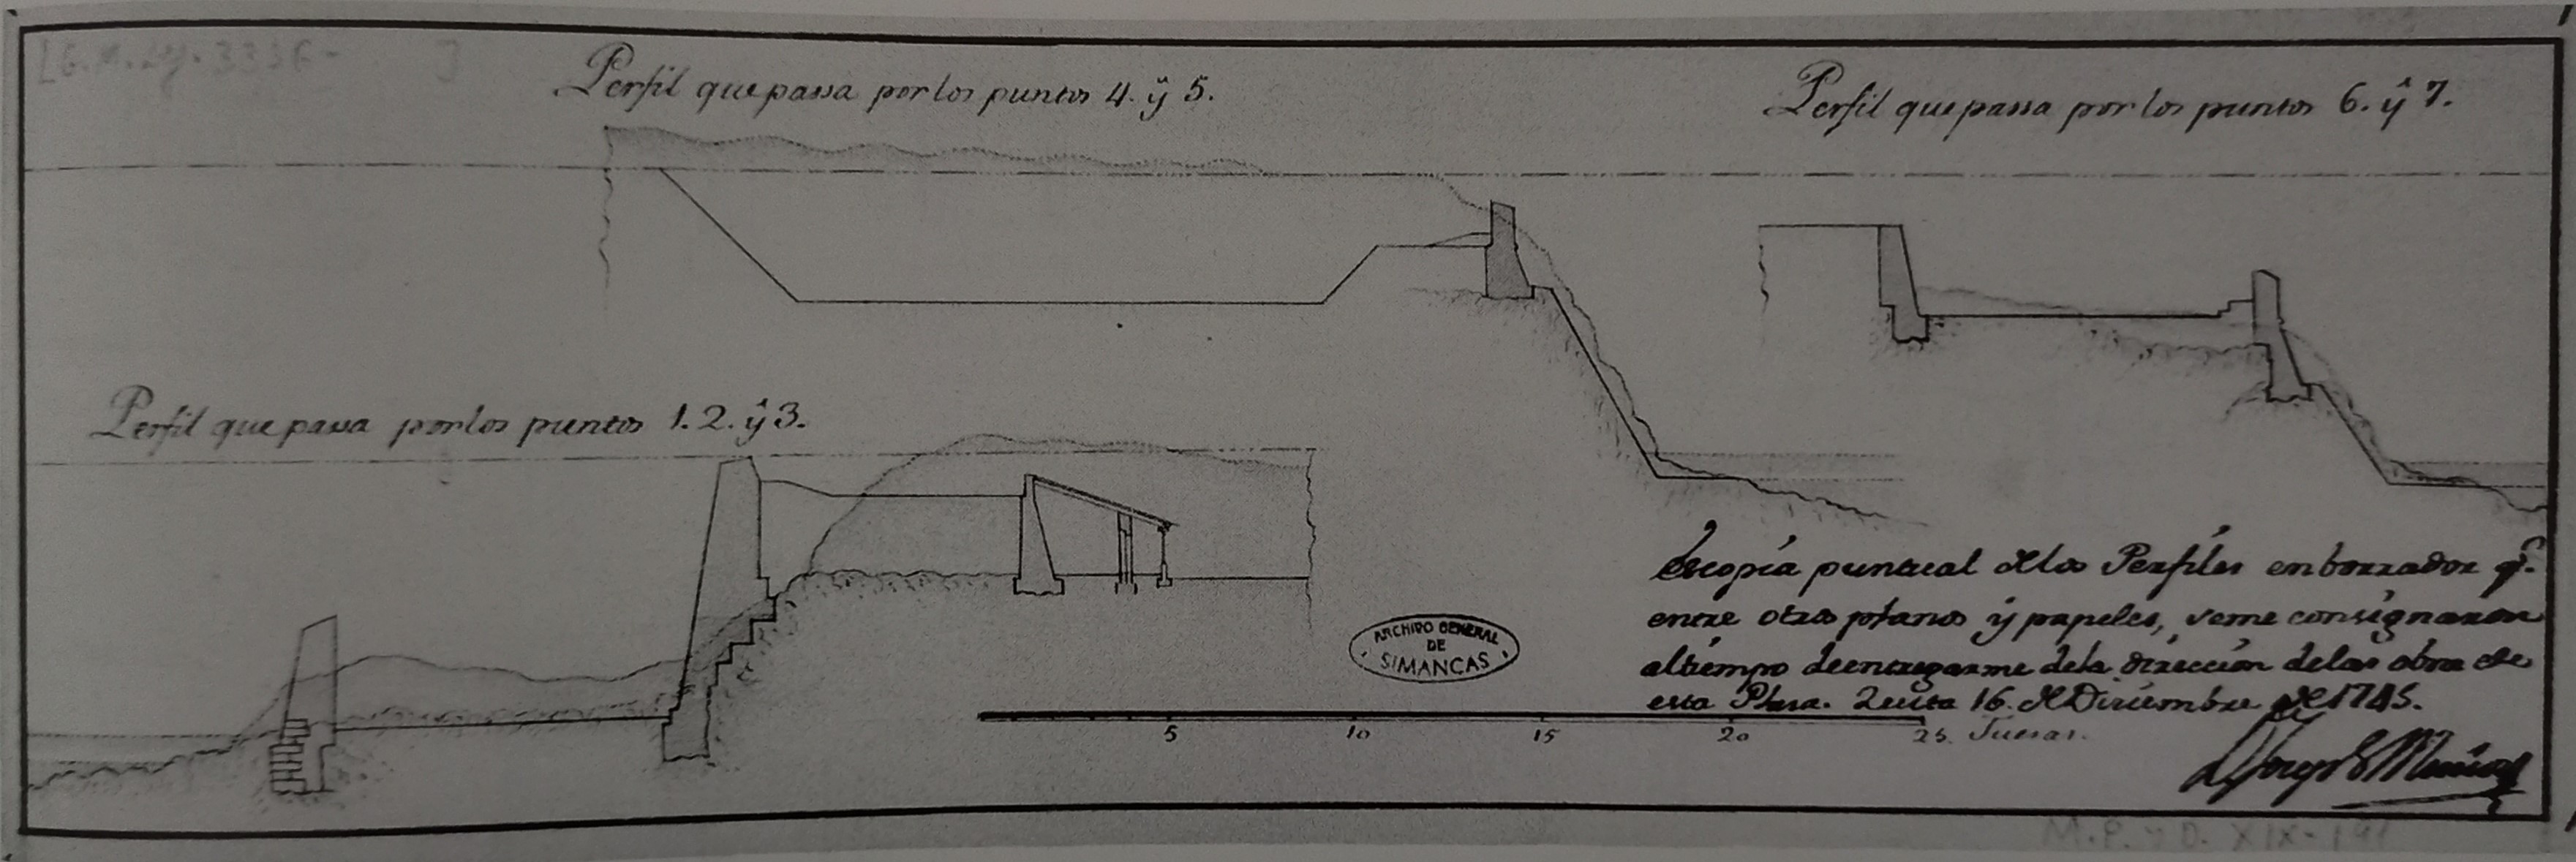 Perfil que passa por los puntos 4. ÿ 5.
Perfil que passa por los puntos 6. ÿ 7.
Perfil que passa por los puntos 1. 2. ÿ 3.
Es copia puntual de los Perfiles en borrador q.e
entre otros planos ÿ papeles, se me consignaron
al tiempo de entregarme de la direccion de las obras de
esta Plasa. Zeuta 16. de Diciembre de 1745.
ARCHIVO GENERAL
DE
SIMANCAS
5 10 15 20 25 Tuesas.
M. P. y D. XIX-